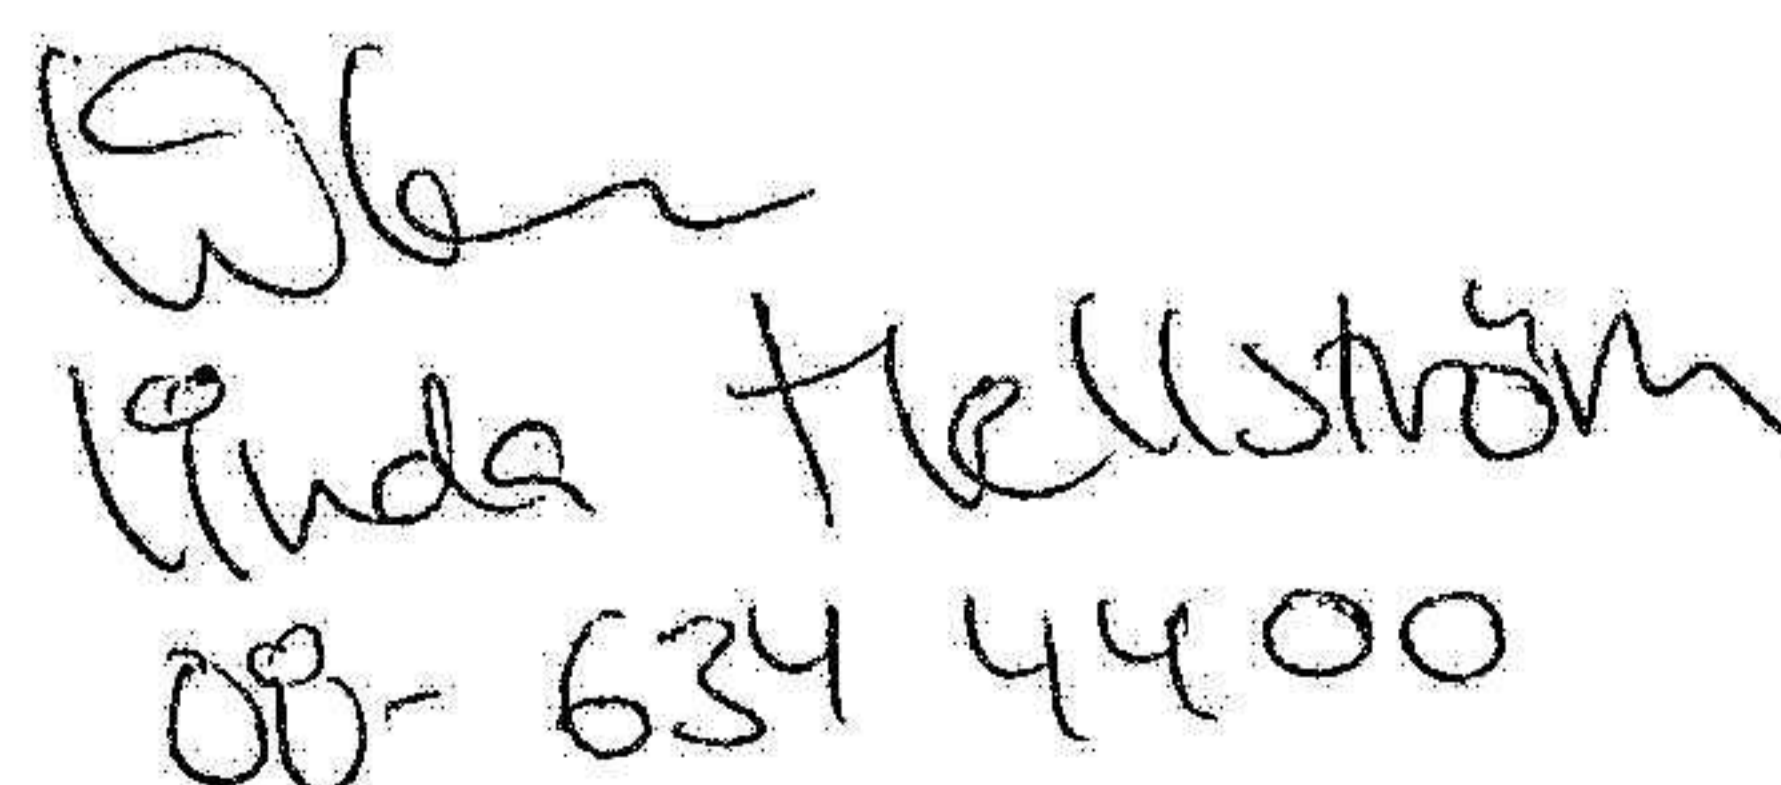 Linda Hellström
08- 634 44 00